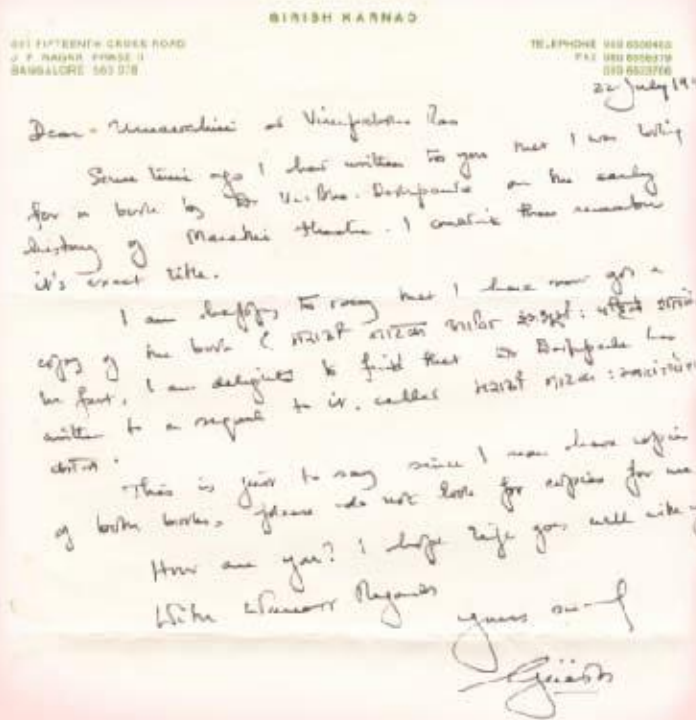 GIRISH KARNAD
FIFTEENTH CROSS ROAD
J P NAGAR PHASE II
BANGALORE 560 078
TELEPHONE
FAX
22 July 19
Dear
Some time ago I had written to you that I was looking
for a book by Dr Vi. Bha. Deshpande on the early
history of Marathi theatre. I couldn't then remember
it's exact title.
I am happy to say that I have now got a
copy of the book (मराठी नाटक आणि
In fact, I am delighted to find that Dr Deshpande has
written to a sequel to it, called मराठी नाटक :
This is just to say since I now have copies
of both books, please do not look for copies for me
How are you? I hope life goes well with
With Warmest Regards
yours
Girish